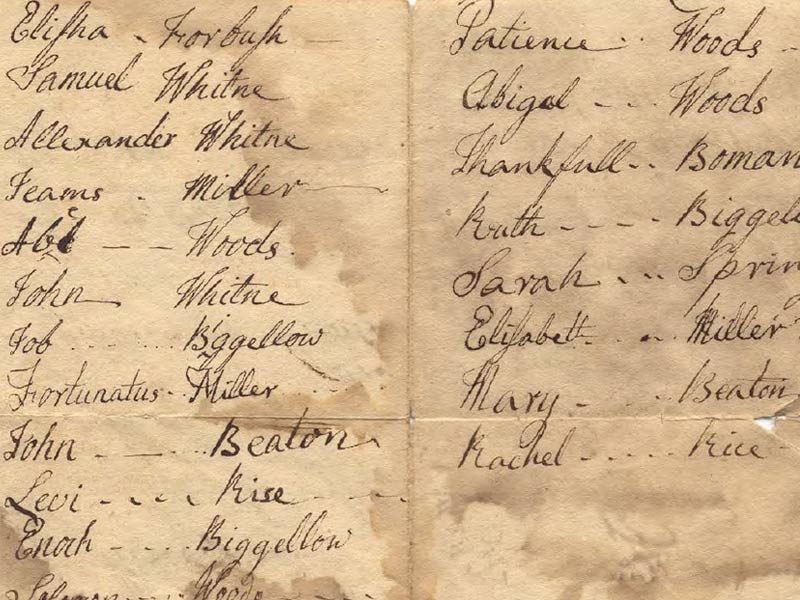 Elisha - Forbush
Samuel Whitne
Allexander Whitne
Jeams - Miller
Abel - - Woods
John Whitne
Job Biggellow
Fortunatus - Miller
John - - Beaton
Levi - - - Rise
Enoch - - - Biggellow
Solomon - - - Woods
Patience - - Woods
Abigal - - - Woods
Thankfull - - Boman
Ruth - - - - Biggell
Sarah - - - Sprin
Elisabett - - - Miller
Mary - - - Beaton
Rachel - - - - - Rice